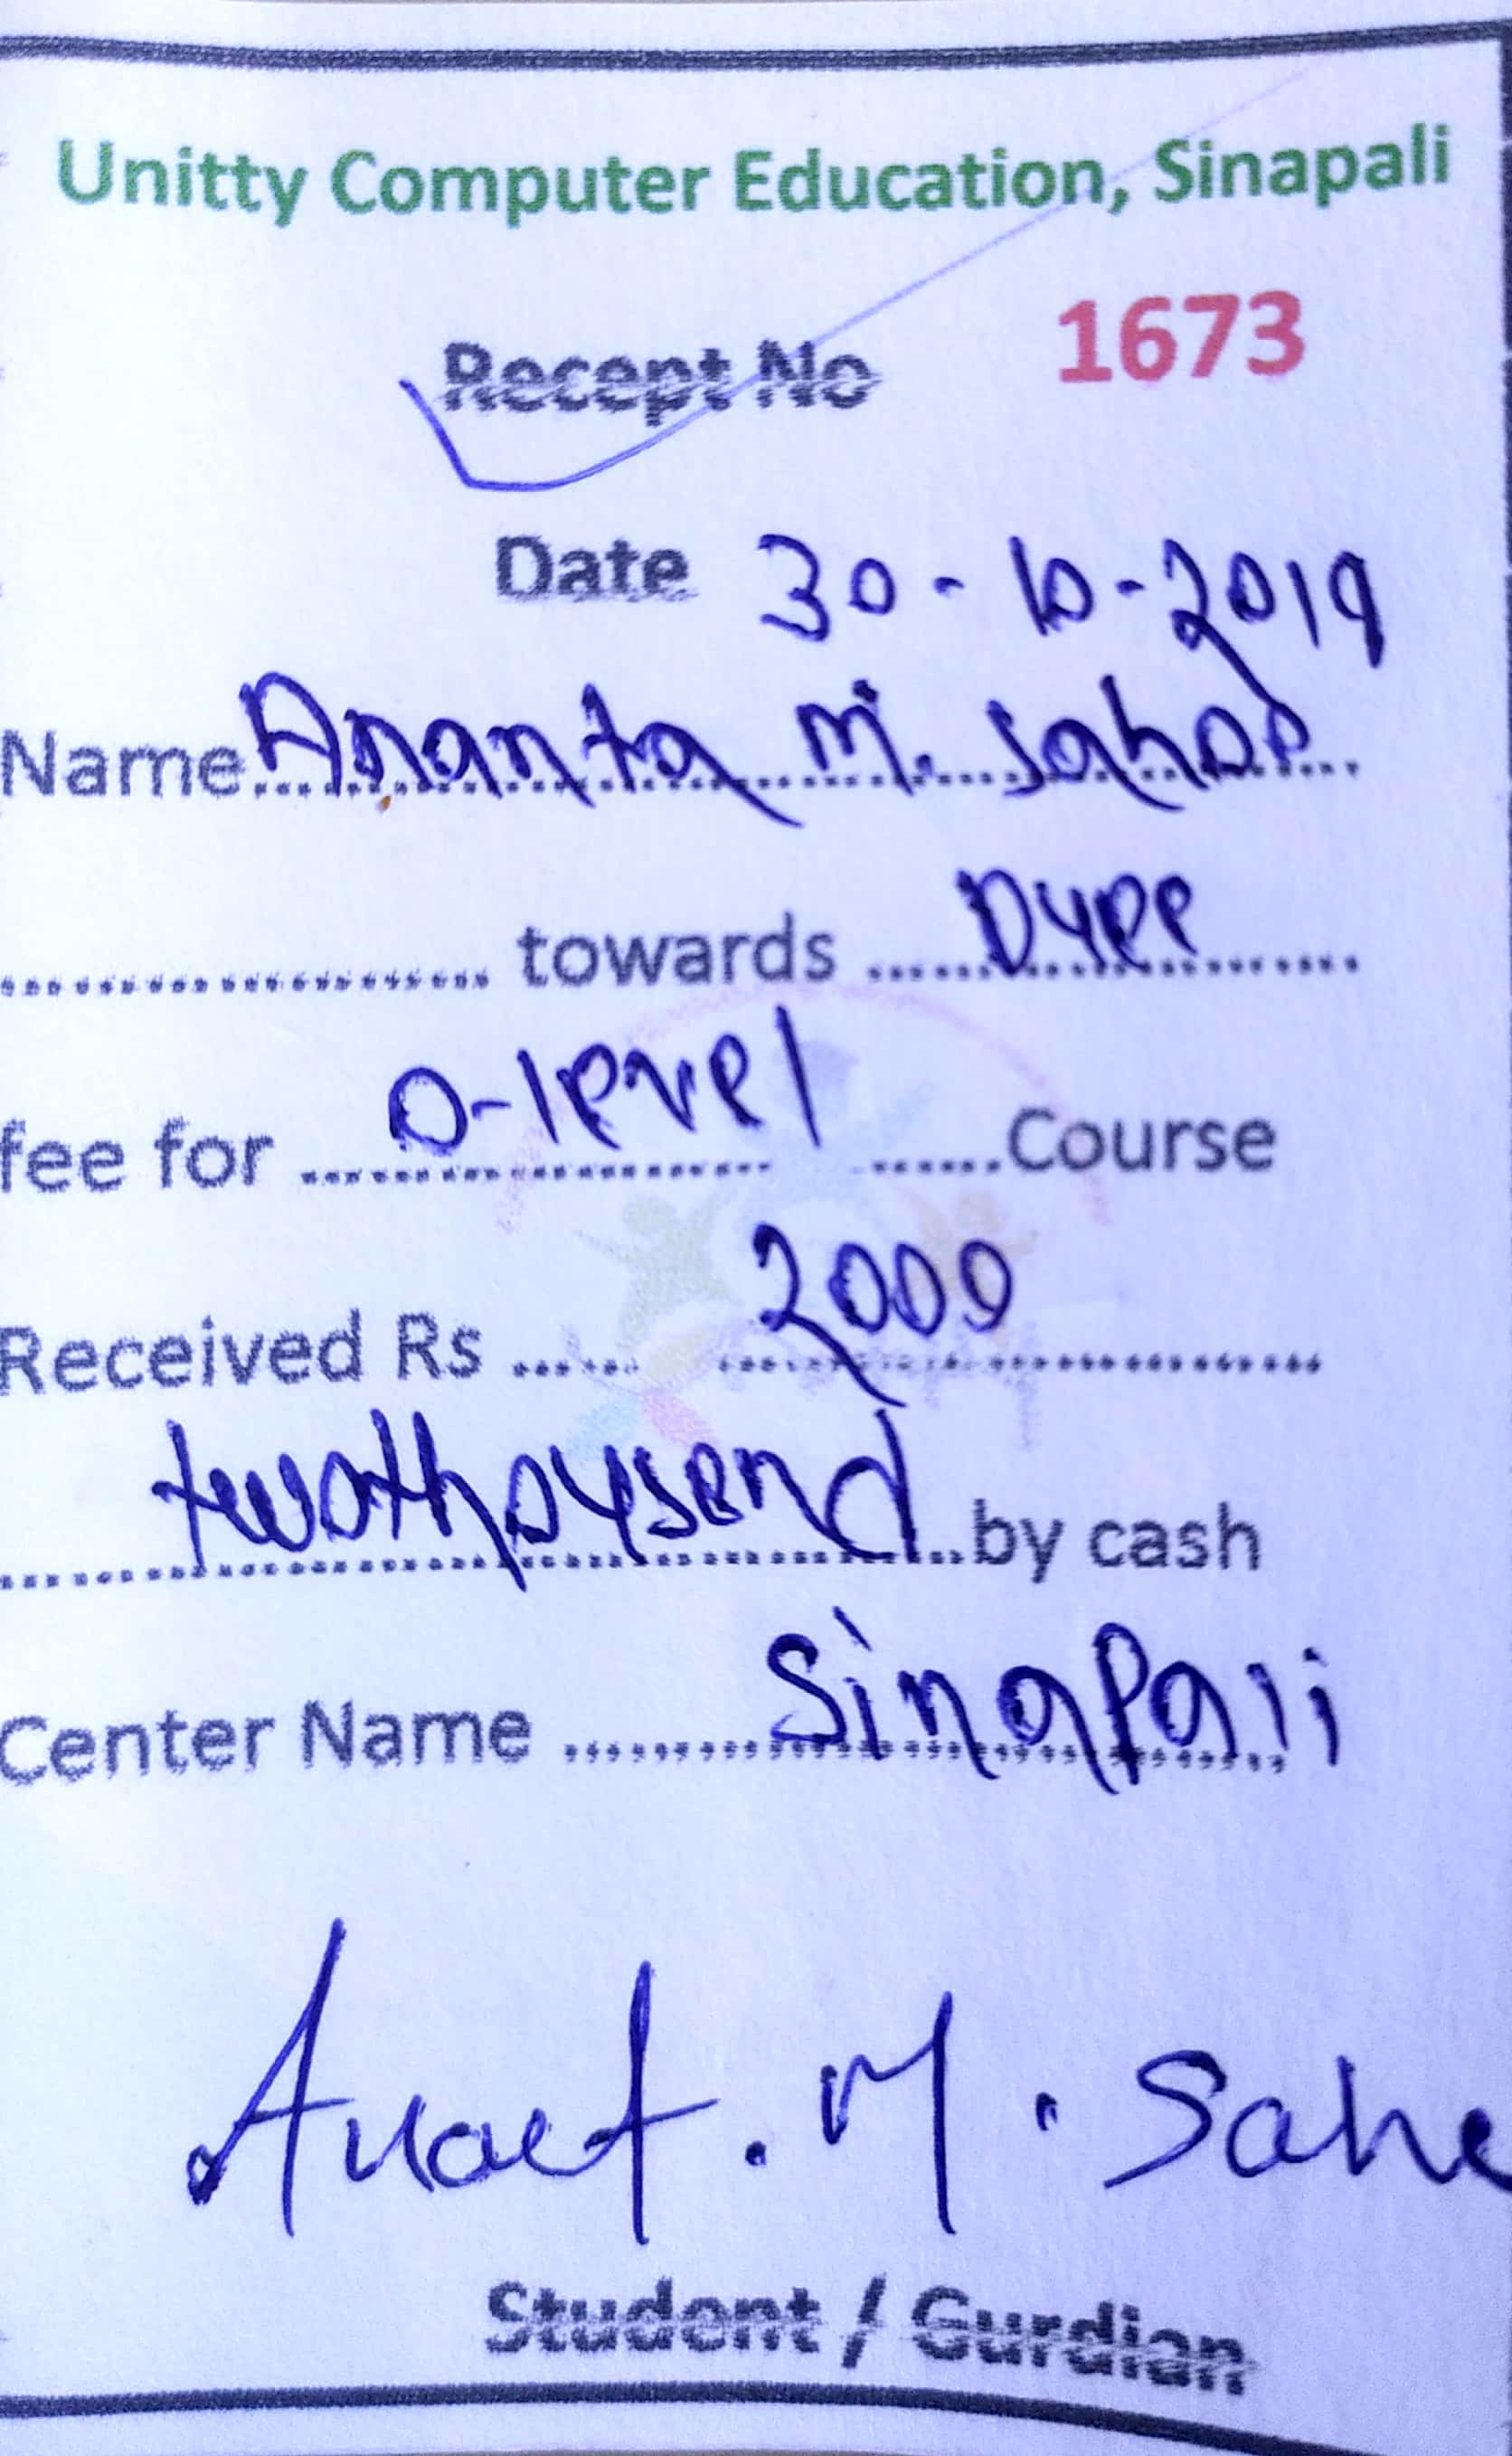 Unitty Computer Education, Sinapali
Recept No 1673
Date 30-10-2019
Name Ananta M. Sahoo
towards Duee
fee for O-level Course
Received Rs 2000
twothousend by cash
Center Name Sinapali
M. Sahe
Student / Gurdian